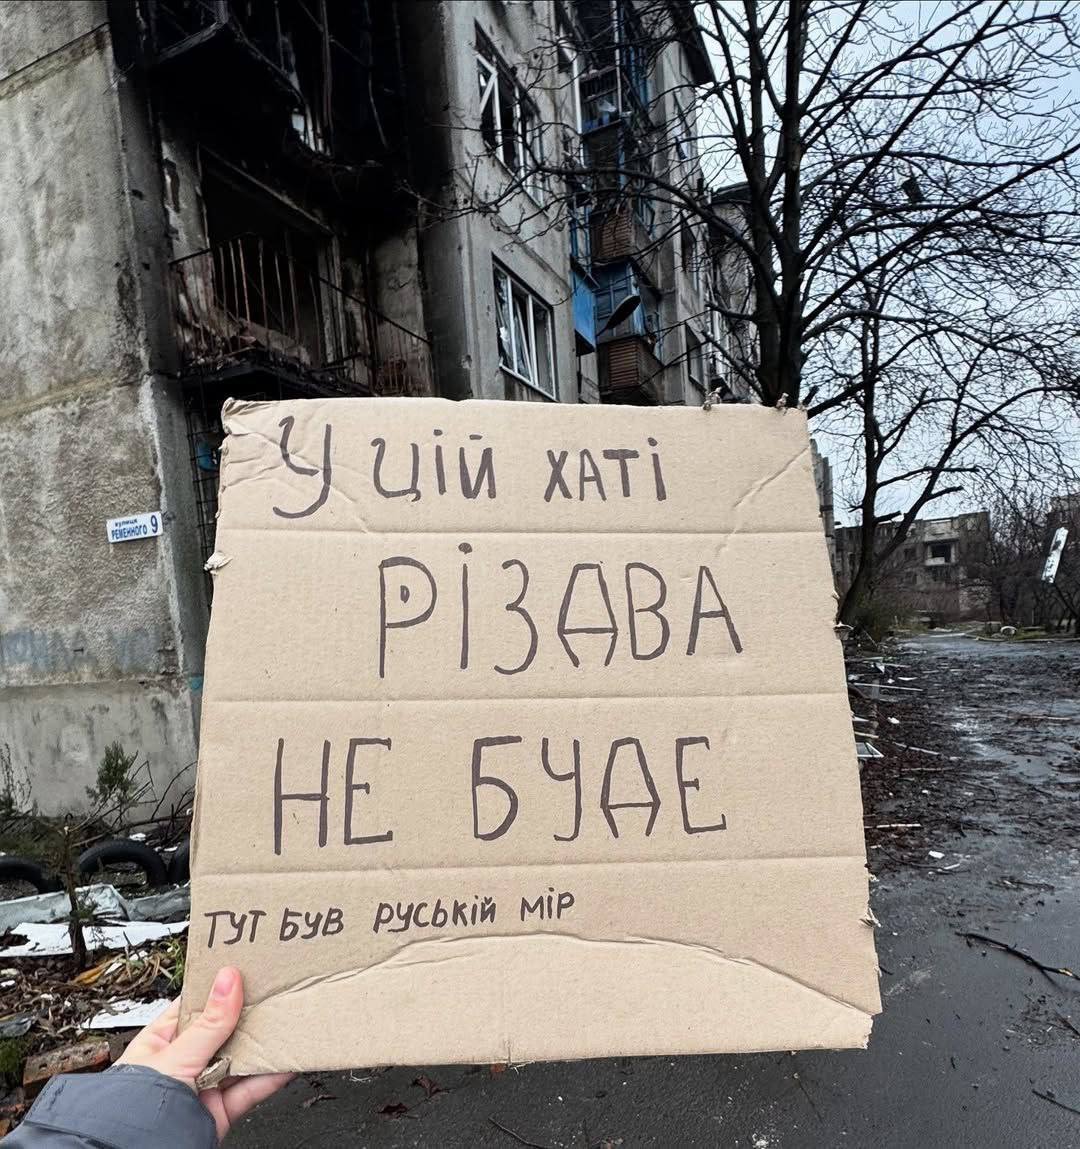 вулиця
РЕМЕННОГО 9
У цій хаті
РІЗДВА
НЕ БУДЕ
ТУТ БУВ РУСЬКІЙ МІР